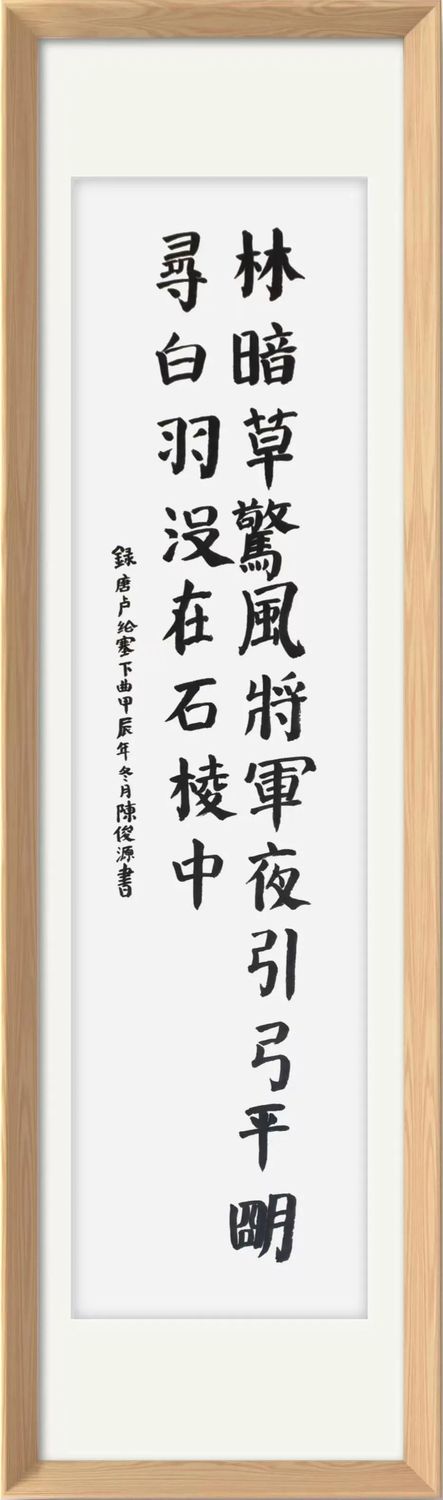 林暗草驚風將軍夜引弓平朙
尋白羽没在石棱中
録唐卢给塞下曲甲辰年冬月陳俊源書